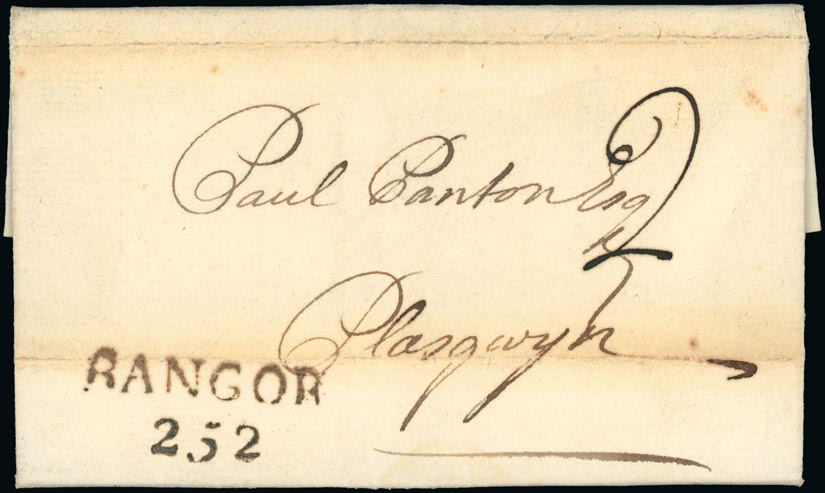 Paul Panton Esqr
2
Plasgwyn
BANGOR
252